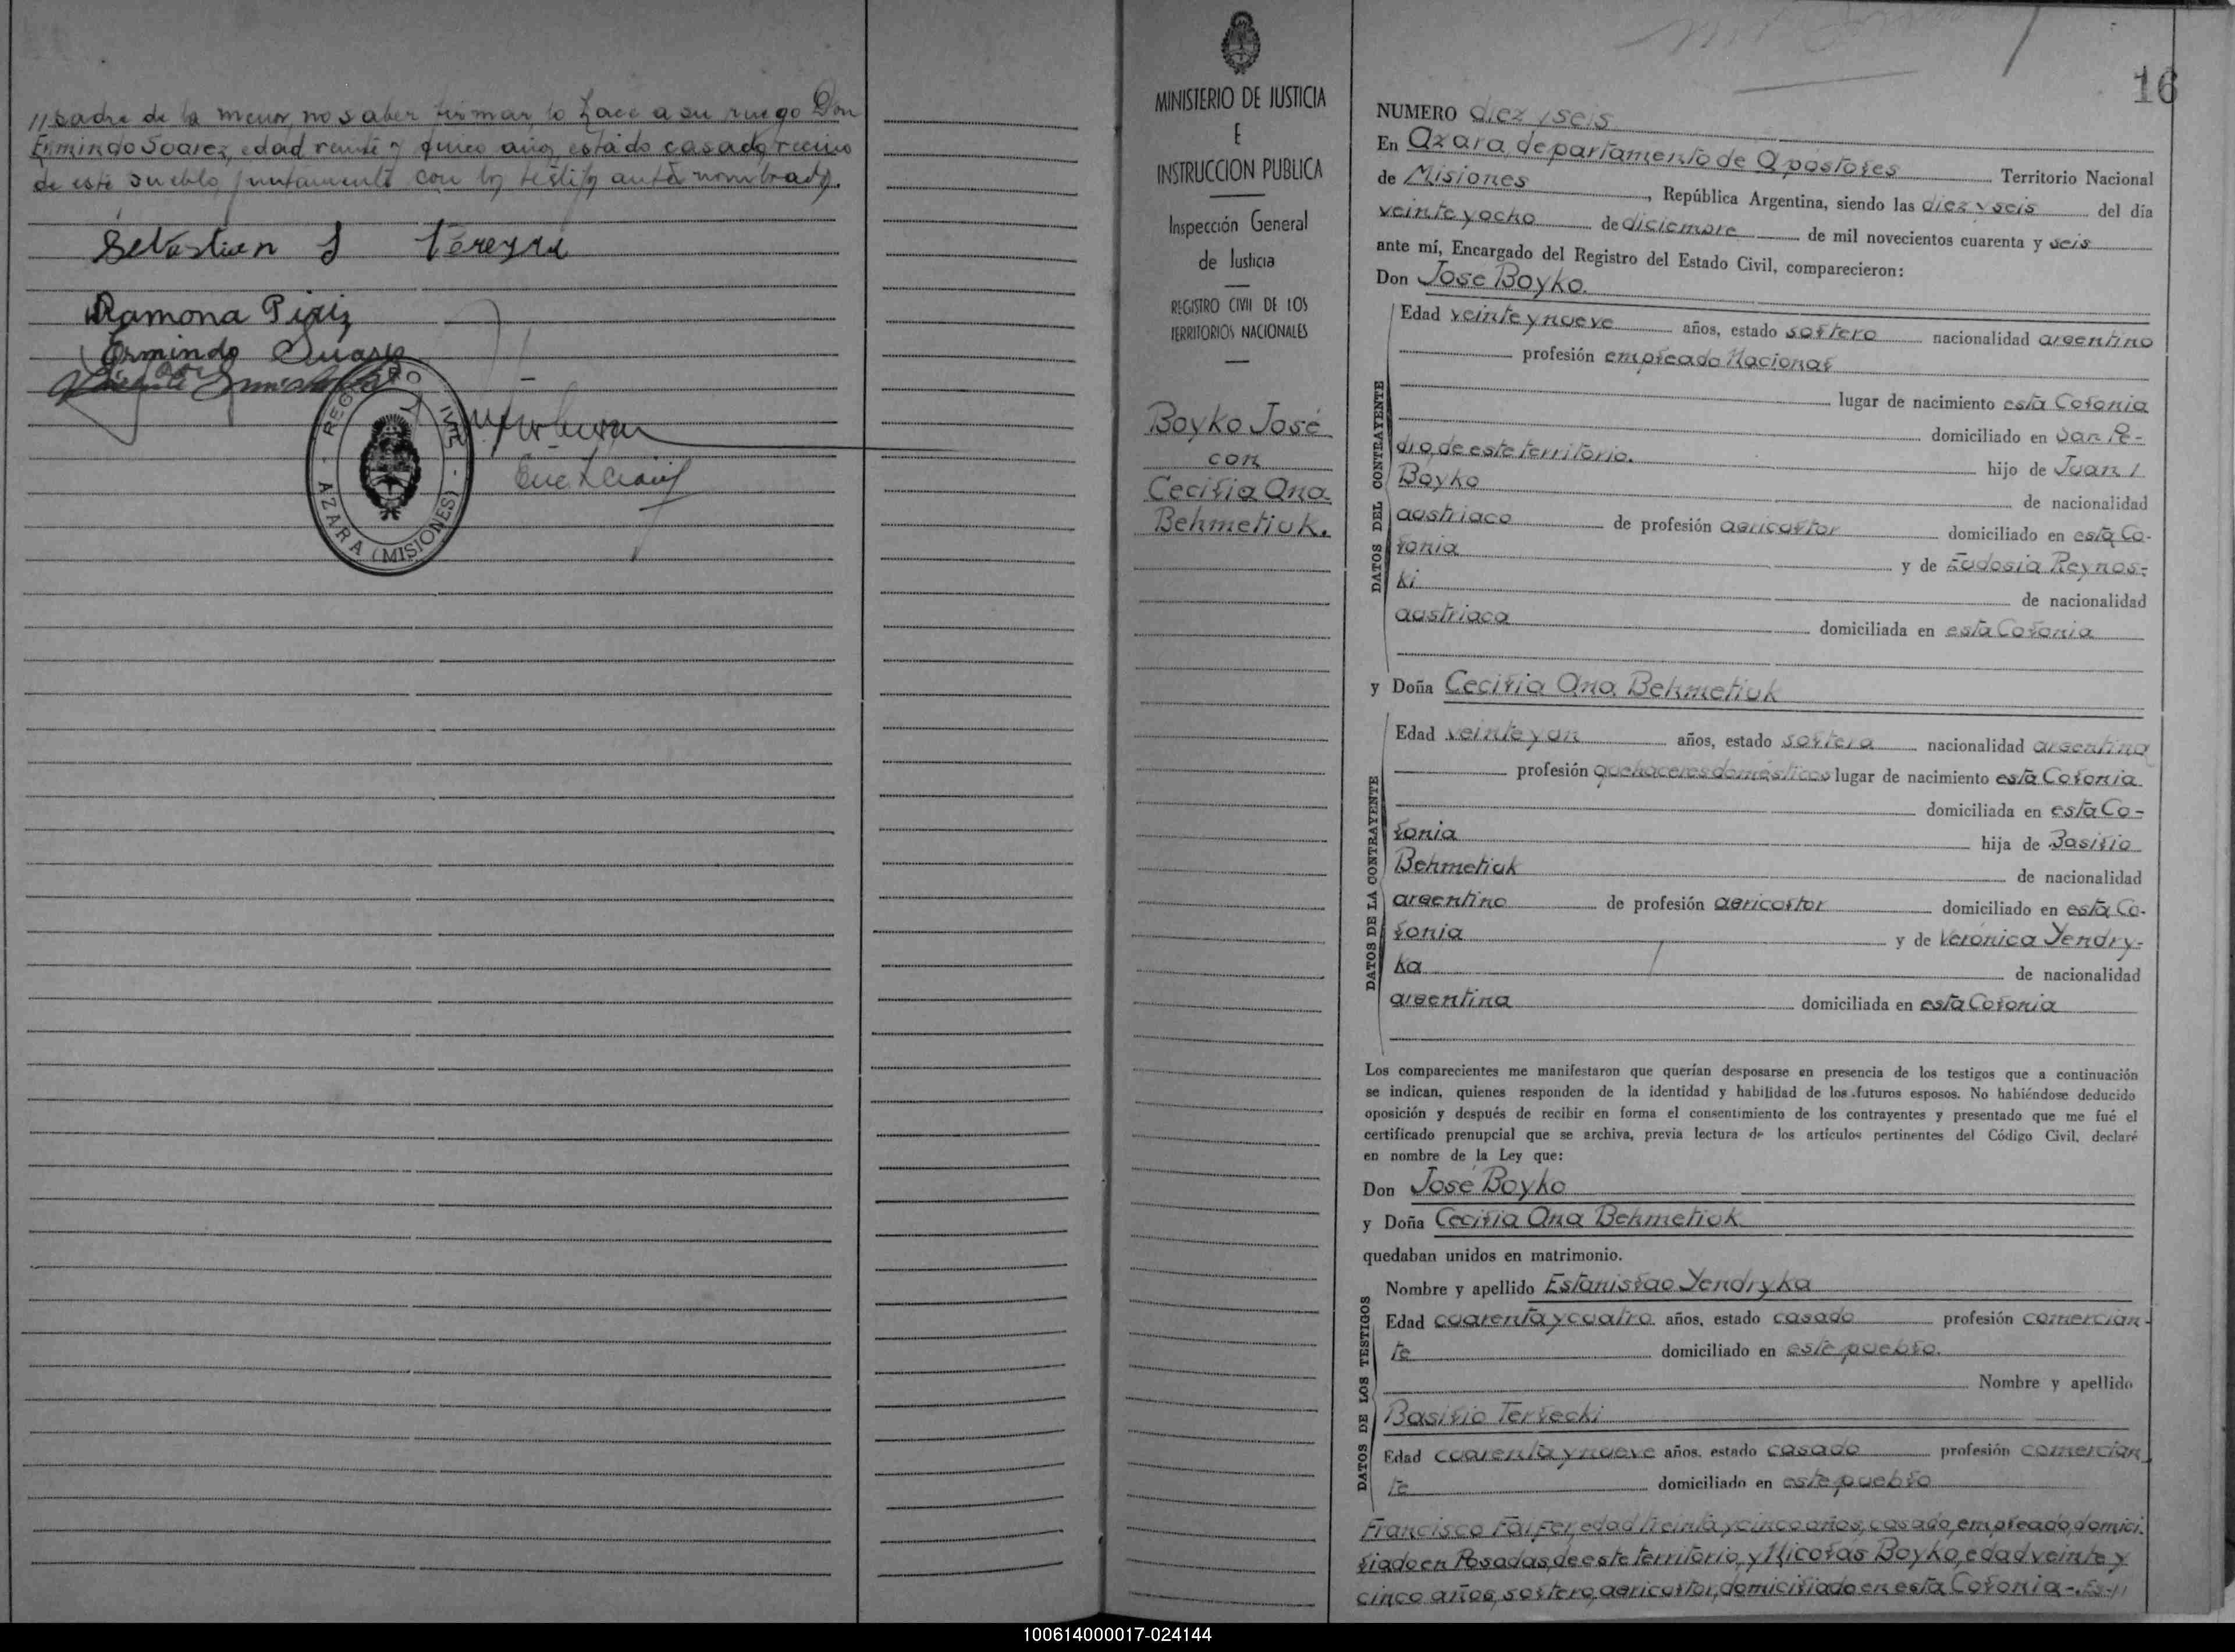 //padre de la menor, no saber firmar, lo hace a su ruego Don
Ermindo Suarez, edad veinte y cinco años, estado casado, vecino
de este pueblo, juntamente con los testigos antes nombrados.
Sebastian J Pereyra
Ramona Piriz
Ermindo Suarez
REGISTRO CIVIL - AZARA (MISIONES) -
MINISTERIO DE JUSTICIA
E
INSTRUCCION PUBLICA
Inspección General
de Justicia
REGISTRO CIVIL DE LOS
TERRITORIOS NACIONALES
Boyko José
con
Cecilia Ana
Behmetiuk.
16
NUMERO diez y seis
En Azara, departamento de Apóstoles Territorio Nacional
de Misiones, República Argentina, siendo las diez y seis del día
veinte y ocho de diciembre de mil novecientos cuarenta y seis
ante mí, Encargado del Registro del Estado Civil, comparecieron:
Don José Boyko.
DATOS DEL CONTRAYENTE
Edad veinte y nueve años, estado soltero nacionalidad argentino
profesión empleado Nacional
lugar de nacimiento esta Colonia
domiciliado en San Pe-
dro, de este territorio. hijo de Juan /
Boyko de nacionalidad
austriaco de profesión agricultor domiciliado en esta Co-
lonia y de Eudosia Reynos-
ki de nacionalidad
austriaca domiciliada en esta Colonia
y Doña Cecilia Ana Behmetiuk
DATOS DE LA CONTRAYENTE
Edad veinte y un años, estado soltera nacionalidad argentina
profesión quehaceres domésticos lugar de nacimiento esta Colonia
domiciliada en esta Co-
lonia hija de Basilio
Behmetiuk de nacionalidad
argentino de profesión agricultor domiciliado en esta Co-
lonia y de Verónica Yendry-
ka de nacionalidad
argentina domiciliada en esta Colonia
Los comparecientes me manifestaron que querían desposarse en presencia de los testigos que a continuación
se indican, quienes responden de la identidad y habilidad de los futuros esposos. No habiéndose deducido
oposición y después de recibir en forma el consentimiento de los contrayentes y presentado que me fué el
certificado prenupcial que se archiva, previa lectura de los artículos pertinentes del Código Civil, declaré
en nombre de la Ley que:
Don José Boyko
y Doña Cecilia Ana Behmetiuk
quedaban unidos en matrimonio.
DATOS DE LOS TESTIGOS
Nombre y apellido Estanislao Yendryka
Edad cuarenta y cuatro años, estado casado profesión comercian-
te domiciliado en este pueblo.
Nombre y apellido
Basilio Terlecki
Edad cuarenta y nueve años, estado casado profesión comercian
te domiciliado en este pueblo
Francisco Faifer, edad treinta y cinco años, casado, empleado, domici
liado en Posadas, de este territorio, y Nicolás Boyko, edad veinte y
cinco años, soltero, agricultor, domiciliado en esta Colonia-.Es-//
100614000017-024144